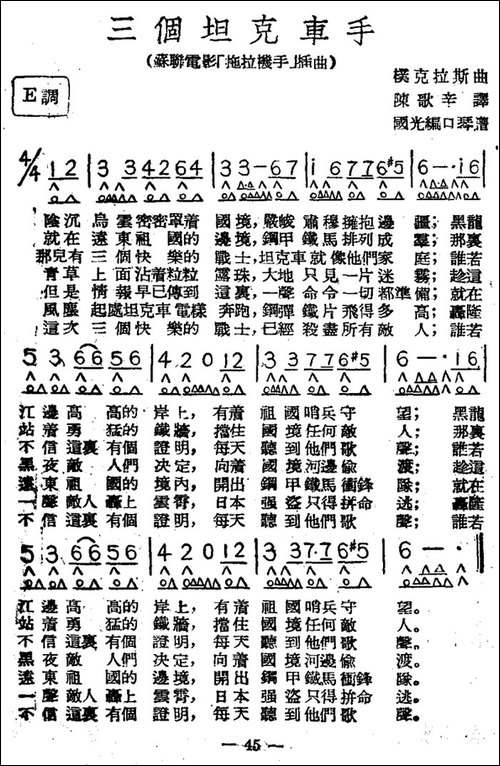 三個坦克車手
(蘇聯電影「拖拉機手」插曲)
E調
樸克拉斯曲
陳歌辛譯
國光編口琴譜
4/4 1 2 | 3 3 4 2 6 4 | 3 3 — 6 7 | i 6 7 7 6 #5 | 6 — · i 6 |
陰沉烏雲密密罩着國境,嚴峻肅穆擁抱邊疆;黑龍
就在遠東祖國的邊境,鋼甲鐵馬排列成羣;那裏
那兒有三個快樂的戰士,坦克車就像他們家庭;誰若
青草上面沾着粒粒露珠,大地只見一片迷霧;趁這
但是情報早已傳到這裏,一聲命令一切都準備;就在
風壓起處坦克車電樣奔跑,鋼彈鐵片飛得多高;轟隆
這次三個快樂的戰士,已經殺盡所有敵人;誰若
5 3 6 6 5 6 | 4 2 0 1 2 | 3 3 7 7 6 #5 | 6 — · i 6 |
江邊高高的岸上,有着祖國哨兵守望;黑龍
站着勇猛的鐵牆,擋住國境任何敵人;那裏
不信這裏有個證明,每天聽到他們歌聲;誰若
黑夜敵人們決定,向着國境河邊偸渡;趁這
遠東祖國的境內,開出鋼甲鐵馬衝鋒隊;就在
一聲敵人轟上雲霄,日本强盜只得拚命逃;轟隆
不信這裏有個證明,每天聽到他們歌聲;誰若
5 3 6 6 5 6 | 4 2 0 1 2 | 3 3 7· 7 6 #5 | 6 — · |
江邊高高的岸上,有着祖國哨兵守望。
站着勇猛的鐵牆,擋住國境任何敵人。
不信這裏有個證明,每天聽到他們歌聲。
黑夜敵人們決定,向着國境河邊偸渡。
遠東祖國的邊境,開出鋼甲鐵馬衝鋒隊。
一聲敵人轟上雲霄,日本强盜只得拚命逃。
不信這裏有個證明,每天聽到他們歌聲。
— 45 —